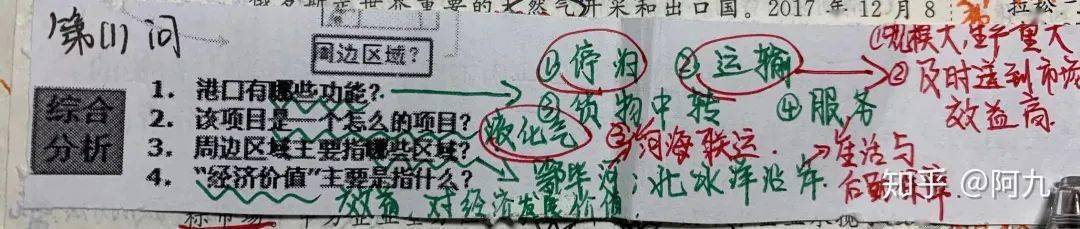 俄罗斯是世界重要的天然气开采和出口国。2017年12月8
第(1)问
周边区域?
①停泊 ②运输
①规模大,生产量大
②及时送到市场
效益高
综合分析
1. 港口有哪些功能?
③货物中转 ④服务
2. 该项目是一个怎么的项目?
液化气 ③河海联运
生活与
后勤保障
3. 周边区域主要指哪些区域?
鄂毕河;北冰洋沿岸
4. “经济价值”主要是指什么?
效益 对经济发展价值
知乎 @阿九